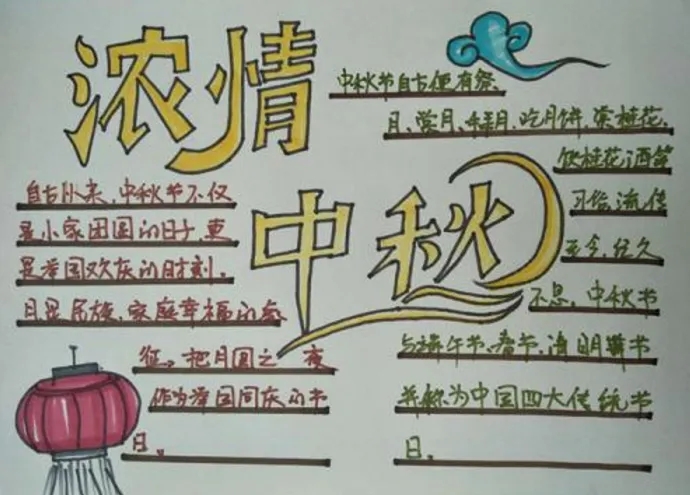 浓情
中秋
中秋节自古便有祭
月、赏月、拜月、吃月饼、赏桂花、
饮桂花酒等
习俗,流传
至今,经久
不息。中秋节
与端午节、春节、清明节
并称为中国四大传统节
日。
自古以来,中秋节不仅
是小家团圆的日子,更
是举国欢庆的时刻。
月是民族、家庭幸福的象
征。把月圆之 夜
作为举国同庆的节
日。